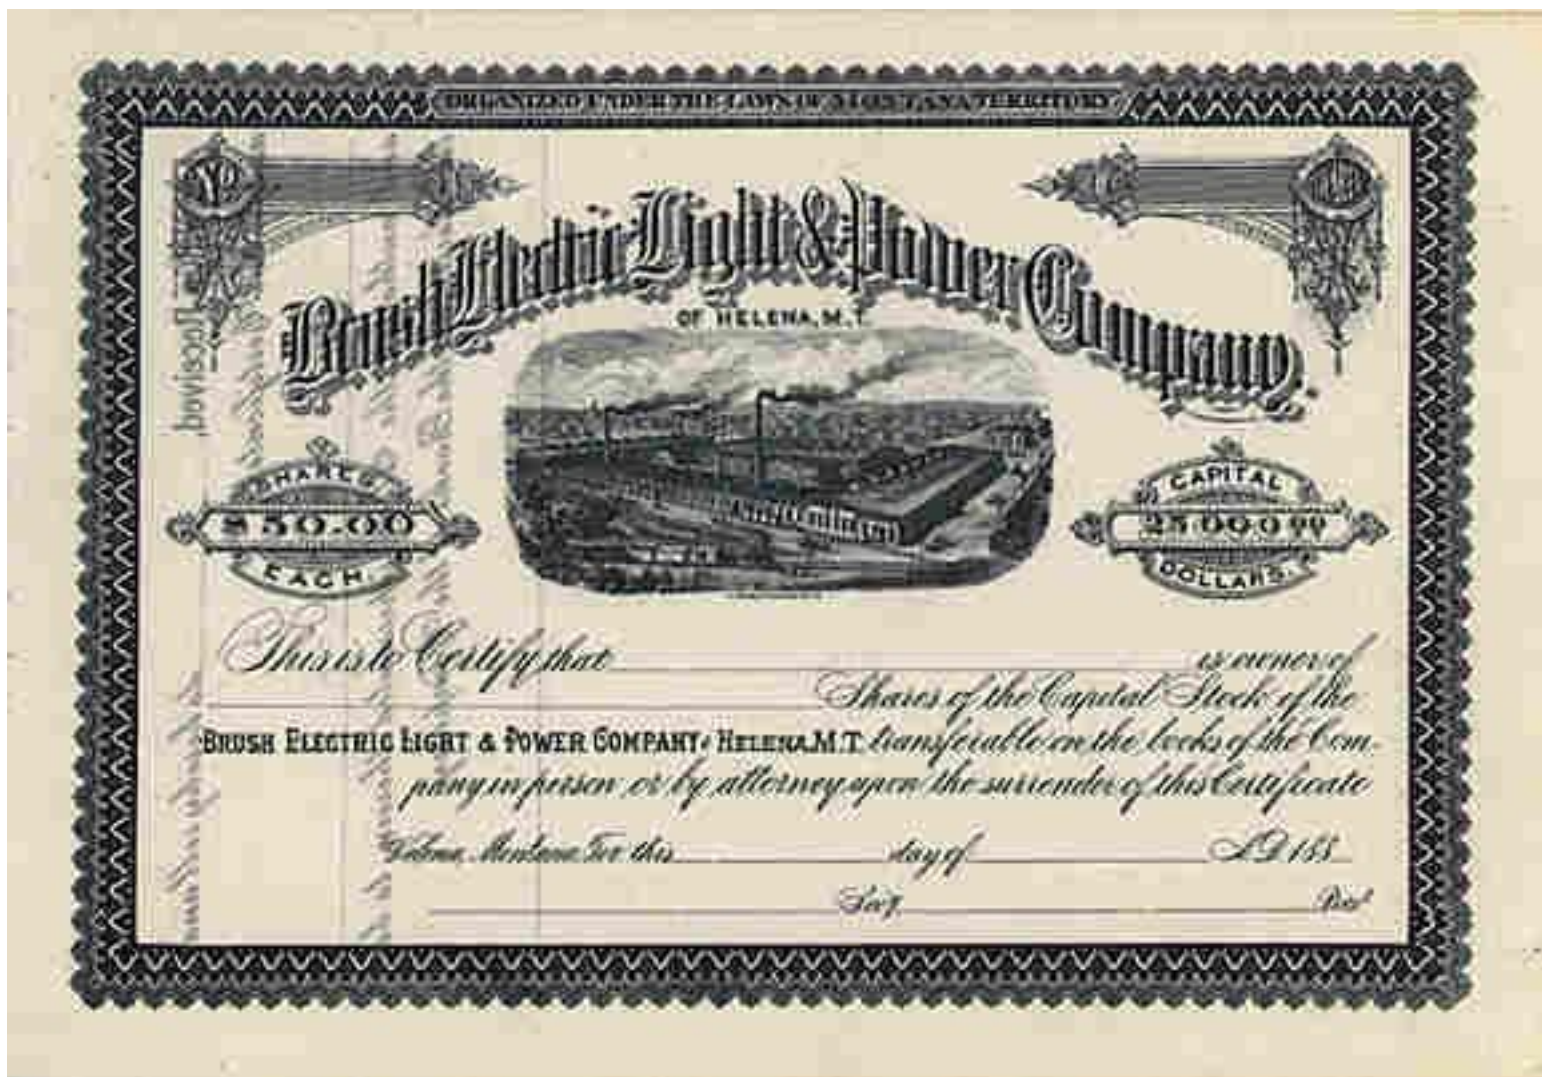 ORGANIZED UNDER THE LAWS OF MONTANA TERRITORY
No
Brush Electric Light & Power Company
OF HELENA, M.T.
SHARES
$50.00
EACH.
CAPITAL
25,000.00
DOLLARS.
This is to Certify that is owner of
Shares of the Capital Stock of the
BRUSH ELECTRIC LIGHT & POWER COMPANY, HELENA, M.T. transferable on the books of the Com-
pany in person or by attorney upon the surrender of this Certificate
Helena, Montana Ter. this day of A.D. 188
Sec'y. Pres't
Received